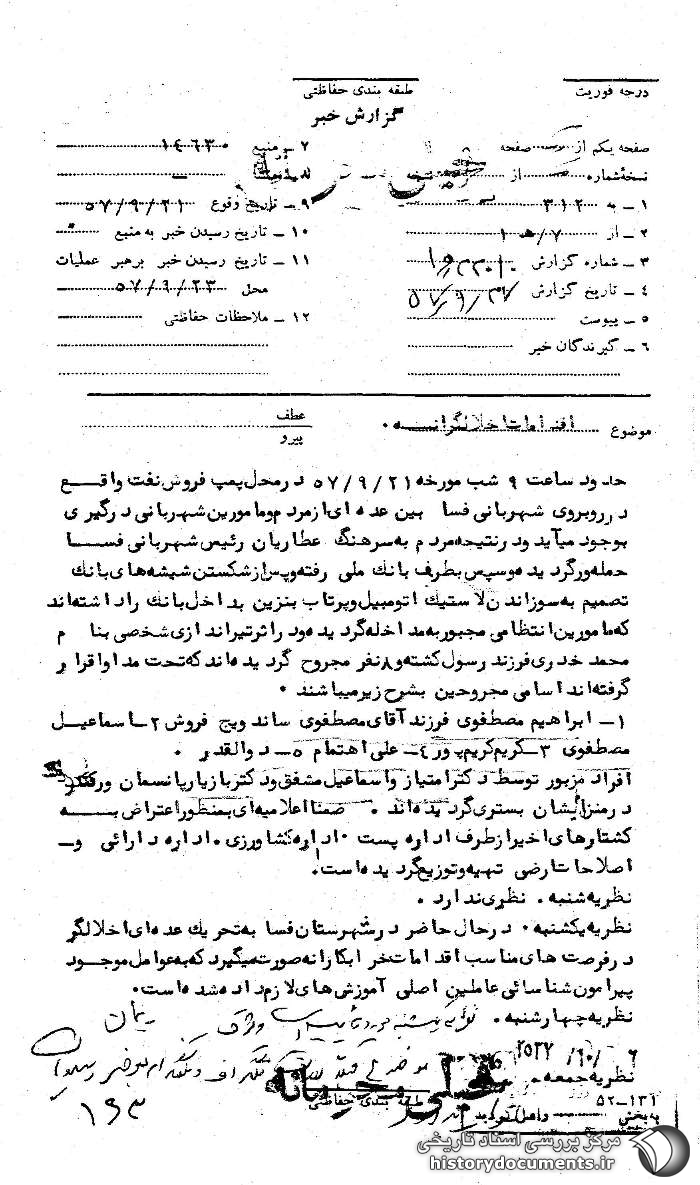 درجه فوریت
طبقه بندی حفاظتی
گزارش خبر
صفحه یکم از یک صفحه
نسخه شماره از نسخه
۱ـ به ۳۱۲
۲ـ از ۷/ هـ ۱
۳ـ شماره گزارش
۴ـ تاریخ گزارش
۵ـ پیوست
۶ـ گیرندگان خبر
۷ـ منبع ۱٤٦۳۰
۹ـ تاریخ وقوع ۵۷/۹/۲۱
۱۰ـ تاریخ رسیدن خبر به منبع
۱۱ـ تاریخ رسیدن خبر برهبر عملیات
محل ۵۷/۹/۲۳
۱۲ـ ملاحظات حفاظتی
موضوع اقدامات اخلالگرانه ۰
عطف
پیرو
حدود ساعت ۹ شب مورخه ۵۷/۹/۲۱ در محل پمپ فروش نفت واقع
در روبروی شهربانی فسا بین عده ای از مردم و مامورین شهربانی درگیری
بوجود میآید و در نتیجه مردم به سرهنگ عطاریان رئیس شهربانی فسا
حمله ور گردیده و سپس بطرف بانک ملی رفته و پس از شکستن شیشه های بانک
تصمیم به سوزاندن لاستیک اتومبیل و پرتاب بنزین بداخل بانک را داشته اند
که مامورین انتظامی مجبور به مداخله گردیده و در اثر تیراندازی شخصی بنام
محمد خدری فرزند رسول کشته و ۸ نفر مجروح گردیده اند که تحت مداوا قرار
گرفته اند اسامی مجروحین بشرح زیر میباشند ۰
۱ـ ابراهیم مصطفوی فرزند آقای مصطفوی ساندویچ فروش ۲ـ اسماعیل
مصطفوی ۳ـ کریم کریم پور ٤ـ علی اهتمام ۵ـ ذوالقدر ۰
افراد مزبور توسط دکتر امتیاز و اسماعیل مشفق و دکتر بازیار پانسمان و
در منزلشان بستری گردیده اند ۰ ضمنا اعلامیه ای بمنظور اعتراض به
کشتارهای اخیر از طرف اداره پست ۰ اداره کشاورزی ۰ اداره دارائی و
اصلاحات ارضی تهیه و توزیع گردیده است.
نظریه شنبه ۰ نظری ندارد ۰
نظریه یکشنبه ۰ در حال حاضر در شهرستان فسا به تحریک عده ای اخلالگر
در فرصت های مناسب اقدامات خرابکارانه صورت میگیرد که به عوامل موجود
پیرامون شناسائی عاملین اصلی آموزش های لازم داده شده است ۰
نظریه چهارشنبه ۰ نظریه یکشنبه مورد تأیید است
نظریه جمعه
۲۵۳۷/۱۰/۶
۵۲ـ۱۳۱
به بخش
طبقه بندی حفاظتی
خیلی محرمانه
۱۹۳
مرکز بررسی اسناد تاریخی
historydocuments.ir